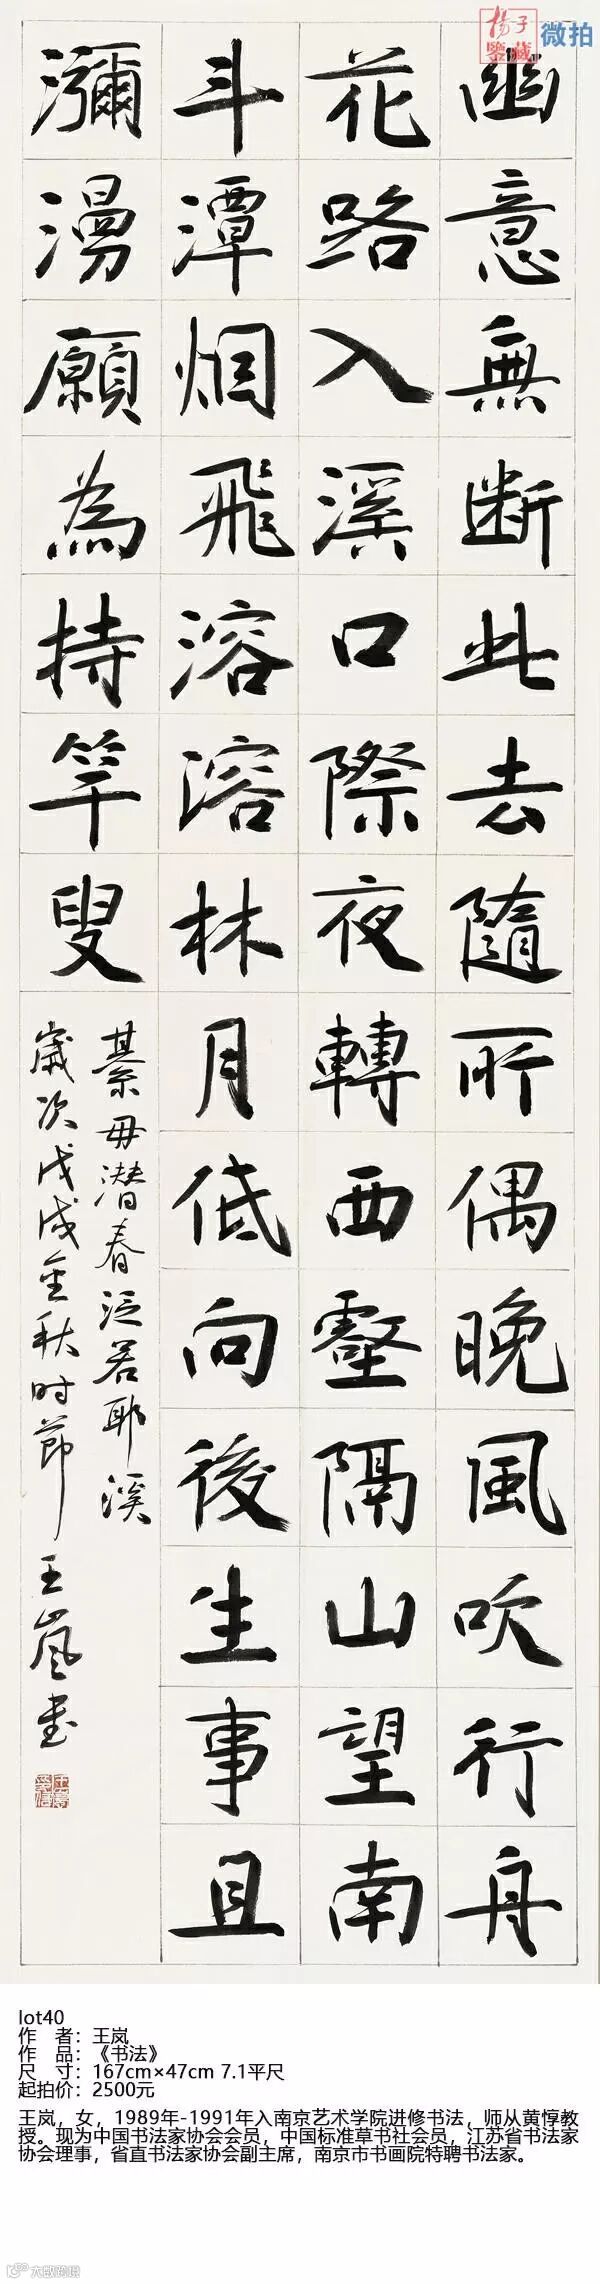 杨子
鉴藏
微拍
幽意無断此去隨所偶晚風吹行舟
花路入溪口際夜轉西壑隔山望南
斗潭烟飛溶溶林月低向後生事且
瀰漫願為持竿叟
綦毋潜春泛若耶溪
歲次戊戌金秋时節 王嵐书
lot40
作 者：王岚
作 品：《书法》
尺 寸：167cm×47cm 7.1平尺
起拍价：2500元
王岚，女，1989年-1991年入南京艺术学院进修书法，师从黄惇教
授。现为中国书法家协会会员，中国标准草书社会员，江苏省书法家
协会理事，省直书法家协会副主席，南京市书画院特聘书法家。
大数跨境